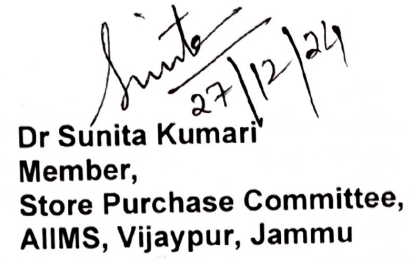 Sunita
27/12/24
Dr Sunita Kumari
Member,
Store Purchase Committee,
AIIMS, Vijaypur, Jammu